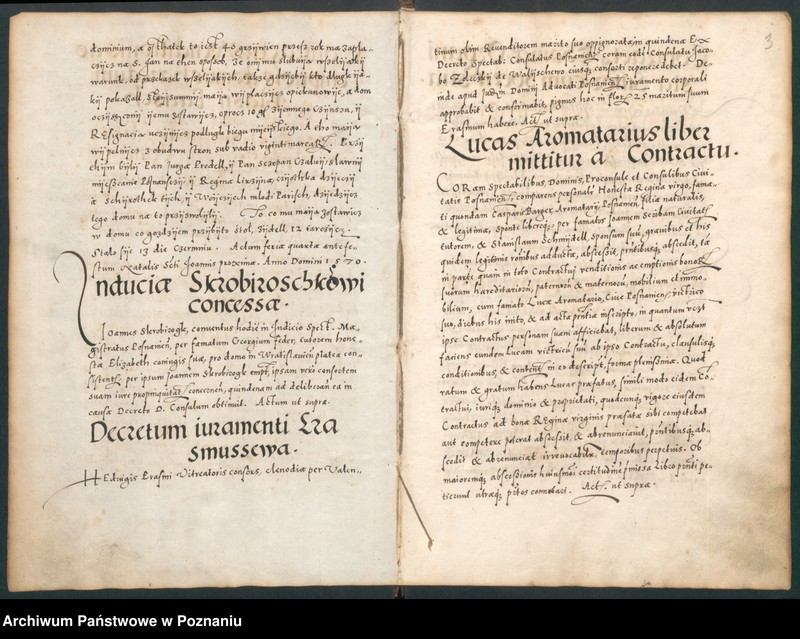 dominium, a osthatek to iest 40 grzijwien przesz rok ma zapla-
czijcz na S. Jan na then sposob, ze onijmu slubuija wszelijakij
warunk, od przekazek wszelijakijch, takze gdzijebij kto dlugk ija-
kij pokazall,
oczijsczonij ijemu zostawijcz, oprocz 10 gl zijemnego czijnszu, ij
REsignacia uczijnijcz podlugk biegu mijeijskiego. A tho maija
wijpelnijcz z obudwu stron sub vadio viginti marcar. Przij
thijm bijli Pan Jurga Predell, ij Pan Sczepan
mijesczanie Posnansczij ij Regina
a Schijrothek tijch, ij Woijczijech mlodi Parisch, dzijedzijcz
tego domu na to przijzwolijli. To co maija zostawicz
w domu co gozdzijem przijbijto stol, zijdell, 12
Stalo sije 13 die Czerwnia. Actum feria quarta antefe-
stum Natalis Scti Joannis proxima. Anno Domini 1570.
Induciæ Skrobiroschkowi
concessæ.
Joannes Skrobirogk, conventus hodie in Iudicio Spect. Ma-
gistratus Posnanien, per famatum Georgium Feder, tutorem hone-
stæ Elizabeth coniugis suæ, pro domo in Wratislavien platea con-
sistente, per ipsum Joannem Skrobirogk empt, ipsam vero consortem
suam iure propinquitat concernen, quindenam ad deliberan ea in
causa Decreto D. Consulum obtinuit. Actum ut supra.
Decretum iuramenti Era
smussewa.
HEdvigis Erasmi Vitreatoris consors, clenodia per Valen-
3
tinum olim Revenditorem marito suo oppignorata, in quindena Ex
Decreto Spectab: Consulatus Posnanien, coram eode Consulatu Jaco-
bo de Walijschewo eiusq consorti reponere debet. De-
inde apud Judm Domini Advocati Posnanien iuramento corporali
approbabit & confirmabit, pignus hoc in flor 25 maritum suum
Erasmum habere. Act ut supra.
Lucas Aromatarius liber
mittitur a Contractu.
CORam Spectabilibus, Dominis, Proconsule et Consulibus Civi-
tatis Posnanien, comparens personal Honesta Regina virgo, fama-
ti quondam Caspari Barger Aromatarij Posnanien, filia naturalis,
& legitima, sponte libereq per famatos Joannem Scribam Civitatis
tutorem, & Stanislaum Schmijdell, sponsum suu, gravibus et his
quidem legitimis ronibus adducta, abscessit, pntibusq abscedit, ta
in parte quam in toto Contractu venditionis ac emptionis bonor
suorum hæreditariorum, paternoru & maternoru, mobilium et immo-
bilium, cum famato Luca Aromatario, Cive Posnanien, victrico
suo, diebus his inito, & ad acta pntia inscripto, in quantum
ipse Contractus personam suam afficiebat, liberum & absolutum
faciens eundem Lucam victricu suu ab ipso Contractu, clausulisq
conditionibus, & content in eo descript, forma plenissima. Quod
ratum & gratum habens Lucas præfatus, simili modo eidem Co-
tractui, iuriq dominio & proprietati, quæcunq vigore eiusdem
Contractus ad bona Reginæ virginis præfatæ sibi competebat
aut competere poterat abscessit, & abrenunciavit, pntibusq ab-
scedit & abrenunciat irrevocabilr temporibus perpetuis. Ob
maioremq abscessionis huiusmoi certitudine pmissa Libro pnti pe-
tierunt utræq ptes connotari. Act. ut supra.
Archiwum Państwowe w Poznaniu